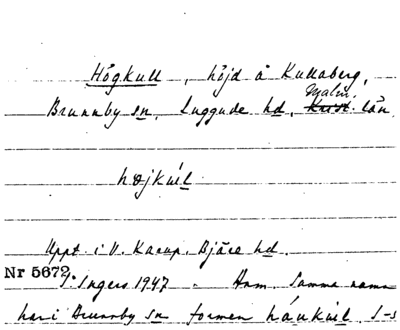 Högkull, höjd å Kullaberg,
Malm.
Brunnby sn, Luggude hd, Krist. län
Uppt. i V. Karup, Bjäre hd.
Nr 5672
S. Ingers 1947 - Anm. Samma namn
har i Brunnby sn formen